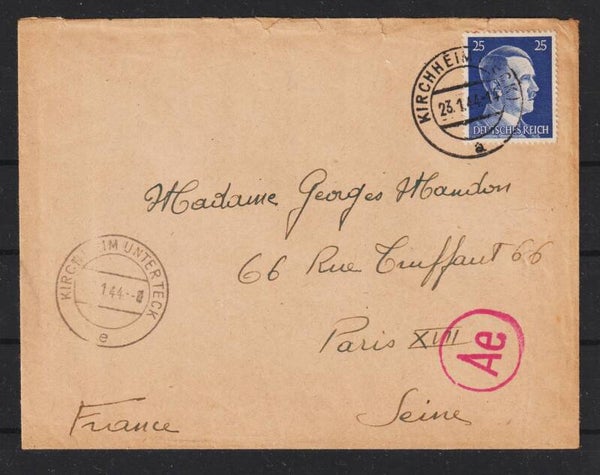 25 25
DEUTSCHES REICH
KIRCHHEIM (TECK)
23.1.44
a
Madame Georges Mandon
66 Rue Truffaut 66
Paris XVII
Seine
France
KIRCHHEIM UNTERTECK
1.44
e
Ae